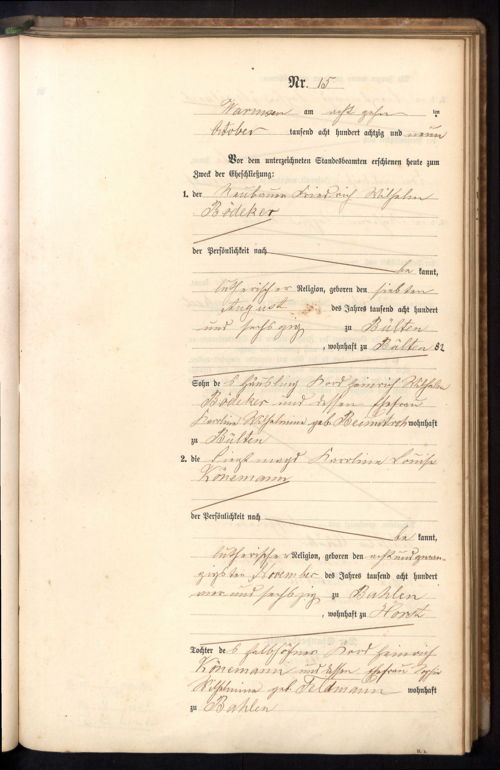 Nr. 15
Warmsen am acht zehn ten
October tausend acht hundert achtzig und neun
Vor dem unterzeichneten Standesbeamten erschienen heute zum
Zweck der Eheschließung:
1. der Neubauer Friedrich Wilhelm
Bödeker
der Persönlichkeit nach
be kannt,
lutherischer Religion, geboren den siebten
August des Jahres tausend acht hundert
und sechszig zu Bülten
, wohnhaft zu Bülten 82
Sohn de s Häusling Kord Heinrich Wilhelm
Bödeker und dessen Ehefrau
Karoline Wilhelmine geb. wohnhaft
zu Bülten
2. die magd Karoline Louise
Könemann
der Persönlichkeit nach
be kannt,
lutherischer Religion, geboren den acht und zwan-
zigsten November des Jahres tausend acht hundert
vier und sechszig zu Bahlen
, wohnhaft zu Horst
Tochter de s Halbhöfner Kord Heinrich
Könemann und dessen Ehefrau Sophie
Wilhelmine geb. Feldmann wohnhaft
zu Bahlen